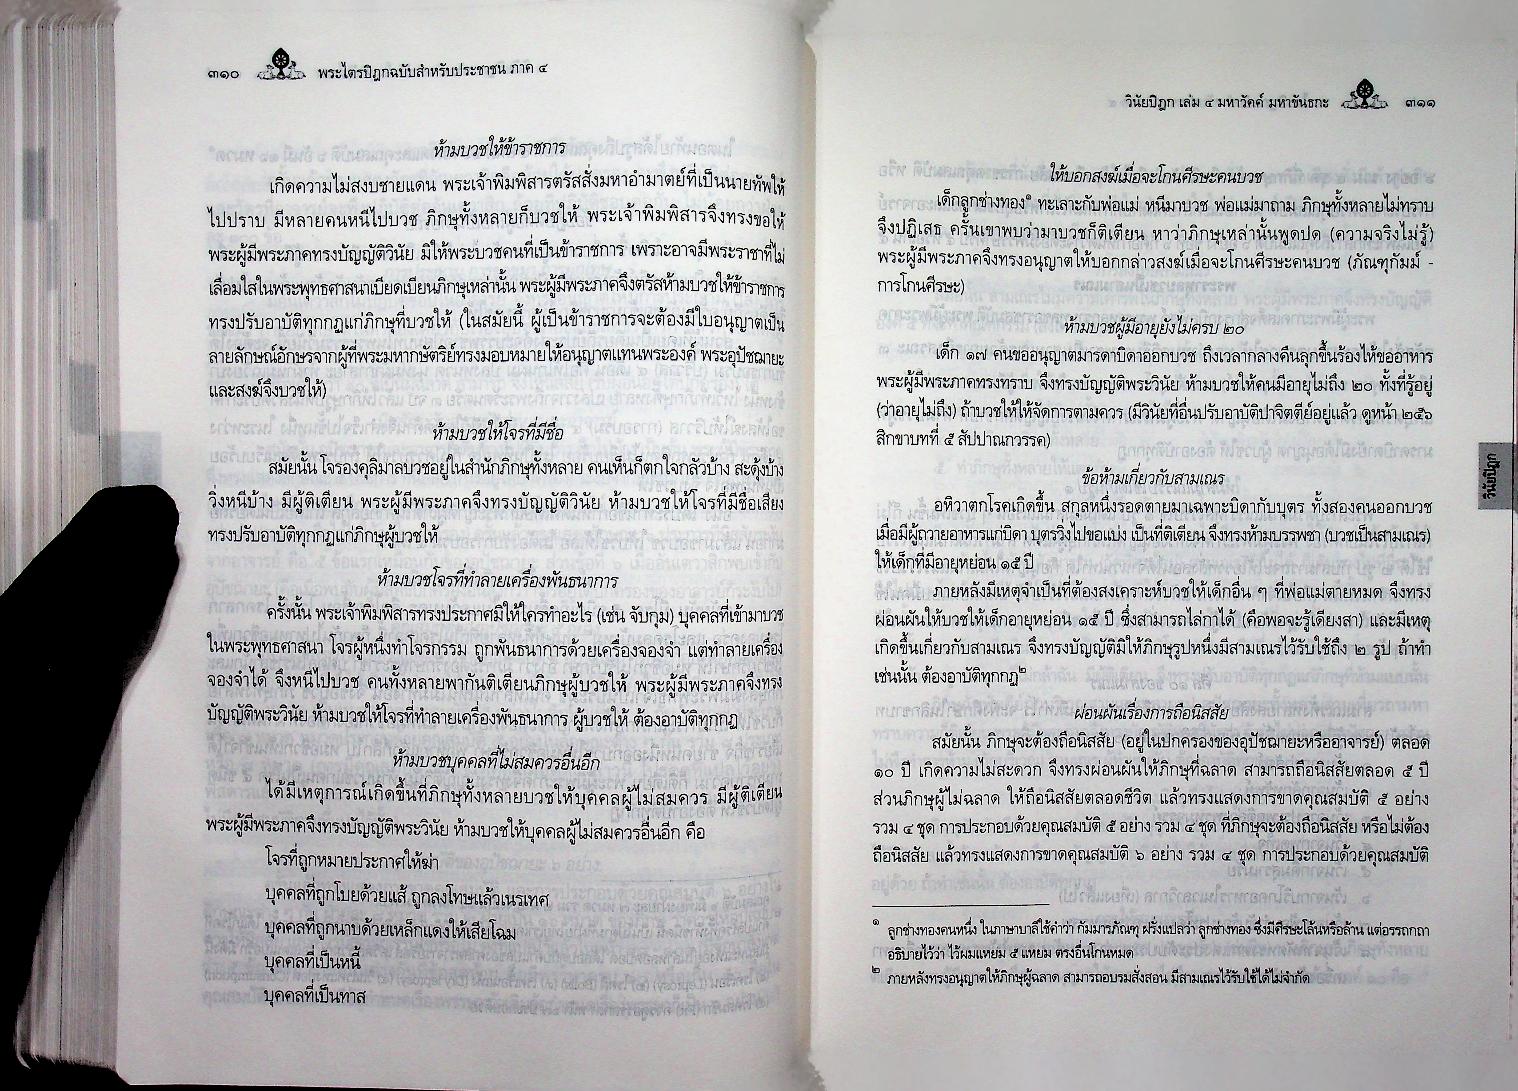 ๓๑๐ พระไตรปิฎกฉบับสำหรับประชาชน ภาค ๔
ห้ามบวชให้ข้าราชการ
เกิดความไม่สงบชายแดน พระเจ้าพิมพิสารตรัสสั่งมหาอำมาตย์ที่เป็นนายทัพให้
ไปปราบ มีหลายคนหนีไปบวช ภิกษุทั้งหลายก็บวชให้ พระเจ้าพิมพิสารจึงทรงขอให้
พระผู้มีพระภาคทรงบัญญัติวินัย มิให้พระบวชคนที่เป็นข้าราชการ เพราะอาจมีพระราชาที่ไม่
เลื่อมใสในพระพุทธศาสนาเบียดเบียนภิกษุเหล่านั้น พระผู้มีพระภาคจึงตรัสห้ามบวชให้ข้าราชการ
ทรงปรับอาบัติทุกกฏแก่ภิกษุที่บวชให้ (ในสมัยนี้ ผู้เป็นข้าราชการจะต้องมีใบอนุญาตเป็น
ลายลักษณ์อักษรจากผู้ที่พระมหากษัตริย์ทรงมอบหมายให้อนุญาตแทนพระองค์ พระอุปัชฌายะ
และสงฆ์จึงบวชให้)
ห้ามบวชให้โจรที่มีชื่อ
สมัยนั้น โจรองคุลิมาลบวชอยู่ในสำนักภิกษุทั้งหลาย คนเห็นก็ตกใจกลัวบ้าง สะดุ้งบ้าง
วิ่งหนีบ้าง มีผู้ติเตียน พระผู้มีพระภาคจึงทรงบัญญัติวินัย ห้ามบวชให้โจรที่มีชื่อเสียง
ทรงปรับอาบัติทุกกฏแก่ภิกษุผู้บวชให้
ห้ามบวชโจรที่ทำลายเครื่องพันธนาการ
ครั้งนั้น พระเจ้าพิมพิสารทรงประกาศมิให้ใครทำอะไร (เช่น จับกุม) บุคคลที่เข้ามาบวช
ในพระพุทธศาสนา โจรผู้หนึ่งทำโจรกรรม ถูกพันธนาการด้วยเครื่องจองจำ แต่ทำลายเครื่อง
จองจำได้ จึงหนีไปบวช คนทั้งหลายพากันติเตียนภิกษุผู้บวชให้ พระผู้มีพระภาคจึงทรง
บัญญัติพระวินัย ห้ามบวชให้โจรที่ทำลายเครื่องพันธนาการ ผู้บวชให้ ต้องอาบัติทุกกฏ
ห้ามบวชบุคคลที่ไม่สมควรอื่นอีก
ได้มีเหตุการณ์เกิดขึ้นที่ภิกษุทั้งหลายบวชให้บุคคลผู้ไม่สมควร มีผู้ติเตียน
พระผู้มีพระภาคจึงทรงบัญญัติพระวินัย ห้ามบวชให้บุคคลผู้ไม่สมควรอื่นอีก คือ
โจรที่ถูกหมายประกาศให้ฆ่า
บุคคลที่ถูกโบยด้วยแส้ ถูกลงโทษแล้วเนรเทศ
บุคคลที่ถูกนาบด้วยเหล็กแดงให้เสียโฉม
บุคคลที่เป็นหนี้
บุคคลที่เป็นทาส
วินัยปิฎก เล่ม ๔ มหาวัคค์ มหาขันธกะ ๓๑๑
ให้บอกสงฆ์เมื่อจะโกนศีรษะคนบวช
เด็กลูกช่างทอง๑ ทะเลาะกับพ่อแม่ หนีมาบวช พ่อแม่มาถาม ภิกษุทั้งหลายไม่ทราบ
จึงปฏิเสธ ครั้นเขาพบว่ามาบวชก็ติเตียน หาว่าภิกษุเหล่านั้นพูดปด (ความจริงไม่รู้)
พระผู้มีพระภาคจึงทรงอนุญาตให้บอกกล่าวสงฆ์เมื่อจะโกนศีรษะคนบวช (ภัณฑุกัมม์ -
การโกนศีรษะ)
ห้ามบวชผู้มีอายุยังไม่ครบ ๒๐
เด็ก ๑๗ คนขออนุญาตมารดาบิดาออกบวช ถึงเวลากลางคืนลุกขึ้นร้องไห้ขออาหาร
พระผู้มีพระภาคทรงทราบ จึงทรงบัญญัติพระวินัย ห้ามบวชให้คนมีอายุไม่ถึง ๒๐ ทั้งที่รู้อยู่
(ว่าอายุไม่ถึง) ถ้าบวชให้ให้จัดการตามควร (มีวินัยที่อื่นปรับอาบัติปาจิตตีย์อยู่แล้ว ดูหน้า ๒๕๖
สิกขาบทที่ ๕ สัปปาณกวรรค)
ข้อห้ามเกี่ยวกับสามเณร
อหิวาตกโรคเกิดขึ้น สกุลหนึ่งรอดตายมาเฉพาะบิดากับบุตร ทั้งสองคนออกบวช
เมื่อมีผู้ถวายอาหารแก่บิดา บุตรวิ่งไปขอแบ่ง เป็นที่ติเตียน จึงทรงห้ามบรรพชา (บวชเป็นสามเณร)
ให้เด็กที่มีอายุหย่อน ๑๕ ปี
ภายหลังมีเหตุจำเป็นที่ต้องสงเคราะห์บวชให้เด็กอื่น ๆ ที่พ่อแม่ตายหมด จึงทรง
ผ่อนผันให้บวชให้เด็กอายุหย่อน ๑๕ ปี ซึ่งสามารถไล่กาได้ (คือพอจะรู้เดียงสา) และมีเหตุ
เกิดขึ้นเกี่ยวกับสามเณร จึงทรงบัญญัติมิให้ภิกษุรูปหนึ่งมีสามเณรไว้รับใช้ถึง ๒ รูป ถ้าทำ
เช่นนั้น ต้องอาบัติทุกกฏ๒
ผ่อนผันเรื่องการถือนิสสัย
สมัยนั้น ภิกษุจะต้องถือนิสสัย (อยู่ในปกครองของอุปัชฌายะหรืออาจารย์) ตลอด
๑๐ ปี เกิดความไม่สะดวก จึงทรงผ่อนผันให้ภิกษุที่ฉลาด สามารถถือนิสสัยตลอด ๕ ปี
ส่วนภิกษุผู้ไม่ฉลาด ให้ถือนิสสัยตลอดชีวิต แล้วทรงแสดงการขาดคุณสมบัติ ๕ อย่าง
รวม ๔ ชุด การประกอบด้วยคุณสมบัติ ๕ อย่าง รวม ๔ ชุด ที่ภิกษุจะต้องถือนิสสัย หรือไม่ต้อง
ถือนิสสัย แล้วทรงแสดงการขาดคุณสมบัติ ๖ อย่าง รวม ๔ ชุด การประกอบด้วยคุณสมบัติ
๑ ลูกช่างทองคนหนึ่ง ในภาษาบาลีใช้คำว่า กัมมารภัณฑุ ฝรั่งแปลว่า ลูกช่างทอง ซึ่งมีศีรษะโล้นหรือล้าน แต่อรรถกถา
อธิบายไว้ว่า ไว้ผมแหยม ๕ แหยม ตรงอื่นโกนหมด
๒ ภายหลังทรงอนุญาตให้ภิกษุผู้ฉลาด สามารถอบรมสั่งสอน มีสามเณรไว้รับใช้ได้ไม่จำกัด
วินัยปิฎก